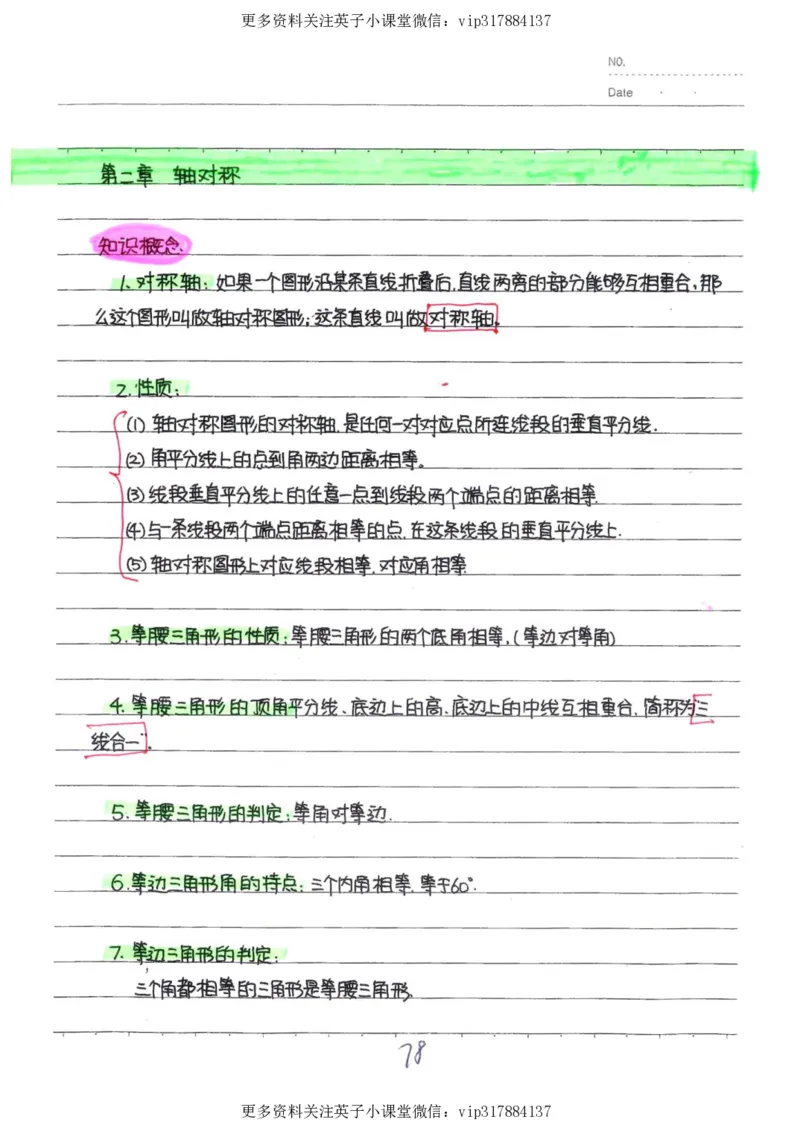 更多资料关注英子小课堂微信：vip317884137
NO.
Date
第二章 轴对称
知识概念、
1、对称轴：如果一个图形沿某条直线折叠后,直线两旁的部分能够互相重合,那
么这个图形叫做轴对称图形；这条直线叫做对称轴。
2.性质：
(1) 轴对称图形的对称轴,是任何一对对应点所连线段的垂直平分线.
(2) 角平分线上的点到角两边距离相等。
(3) 线段垂直平分线上的任意一点到线段两个端点的距离相等.
(4) 与一条线段两个端点距离相等的点,在这条线段的垂直平分线上.
(5) 轴对称图形上对应线段相等,对应角相等.
3.等腰三角形的性质：等腰三角形的两个底角相等,(等边对等角)
4.等腰三角形的顶角平分线、底边上的高、底边上的中线互相重合,简称为“三
线合一”.
5.等腰三角形的判定：等角对等边.
6.等边三角形角的特点：三个内角相等,等于60°.
7.等边三角形的判定：
三个角都相等的三角形是等腰三角形.
78
更多资料关注英子小课堂微信：vip317884137